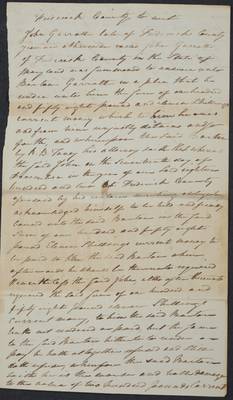 Frederick County to wit
John Garrott late of Frederick County
yeoman otherwise called John Garrott
of Frederick County in the State of
Maryland was summoned to answer unto
Barton Garrott in a plea that he
render unto him the sum of one hundred
and fifty eight pounds and eleven Shillings
current money which he owes to and
from him unjustly detains &c
for that, and whereupon the said Barton
by R B Taney his attorney saith that whereas
the said John on the Seventeenth day of
in the year of our Lord eighteen
hundred and two at Frederick County
aforesaid by his
acknowledged himself to be held and firmly
bound unto the said Barton in the said
Sum of one hundred and fifty eight
pound Eleven Shillings current money to
be paid to the said Barton when
afterwards he should be thereunto required
Nevertheless the said John although
required the said sum of one hundred and
fifty eight pound Shillings
current money to him the said Barton
hath not rendered or paid but the same
to the said Barton hath to render or
pay he hath altogether refused and still
doth refuse whereupon the said Barton
saith he is the worse and hath damage
to the value of two hundred pounds Current